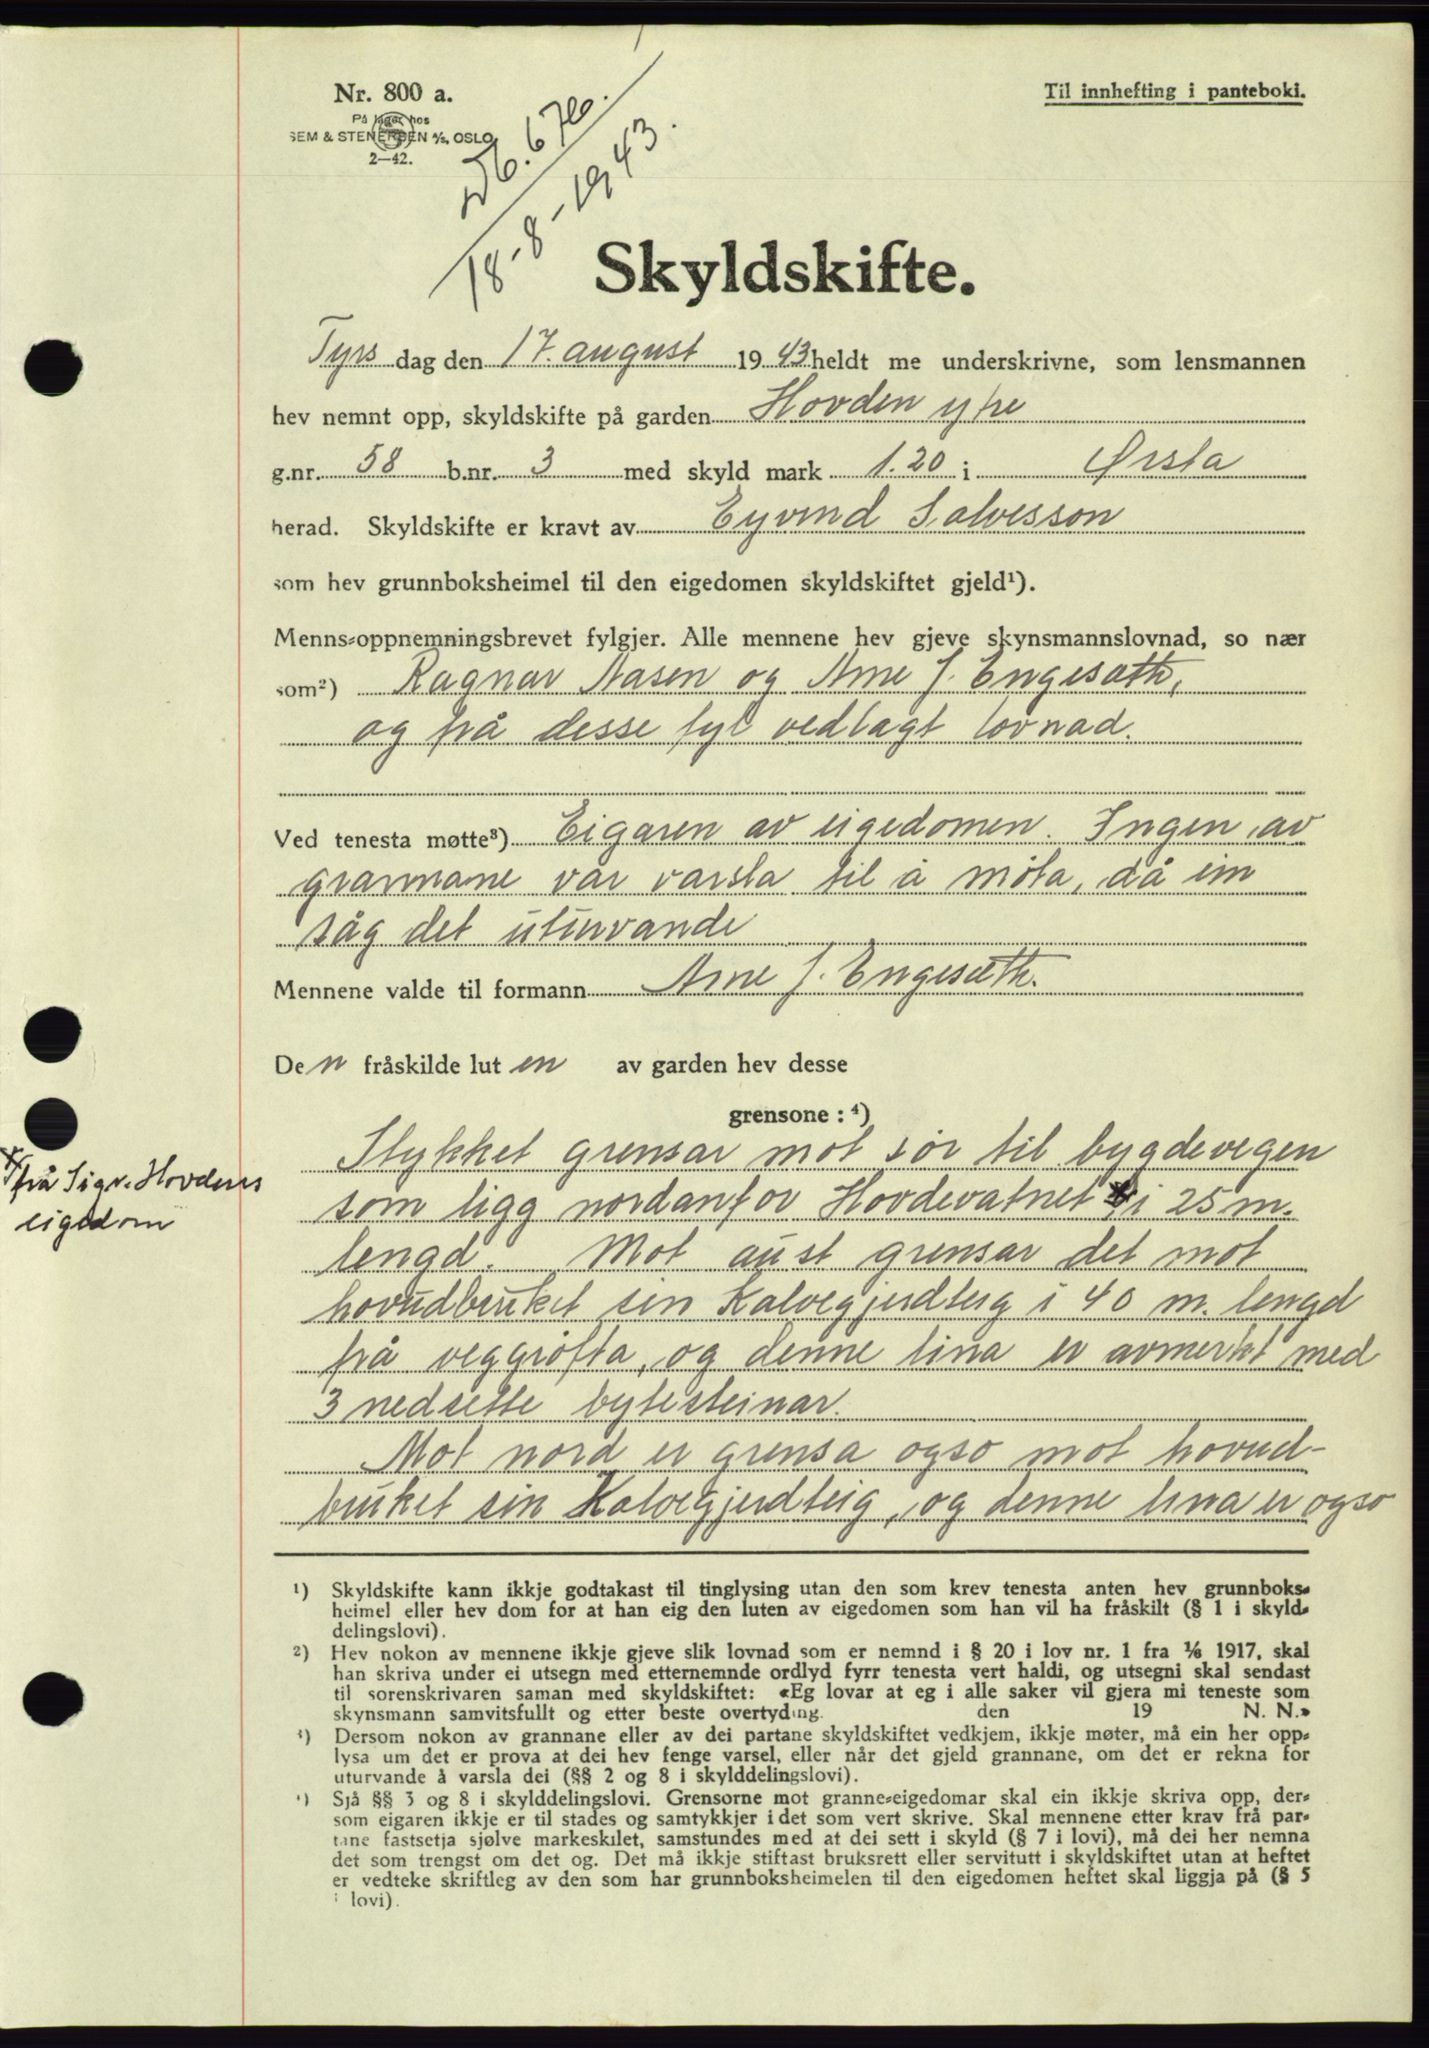 Nr. 800 a.
På lager hos
SEM & STENERSEN A/S, OSLO
2—42.
Til innhefting i panteboki.
676.
18-8-1943.
Skyldskifte.
Tyrs dag den 17. august 1943 heldt me underskrivne, som lensmannen
hev nemnt opp, skyldskifte på garden Hovden ytre
g.nr. 58 b.nr. 3 med skyld mark 1.20 i Ørsta
herad. Skyldskifte er kravt av Eyvind Salvesson
som hev grunnboksheimel til den eigedomen skyldskiftet gjeld¹).
Menns-oppnemningsbrevet fylgjer. Alle mennene hev gjeve skynsmannslovnad, so nær
som²) Ragnar Aasen og Arne J. Engesæth,
og frå desse fyl vedlagt lovnad.
Ved tenesta møtte³) Eigaren av eigedomen. Ingen av
grannane var varsla til å møta, då ein
såg det uturvande
Mennene valde til formann Arne J. Engesæth.
Den fråskilde luten av garden hev desse
grensone: ⁴)
Stykket grensar mot sør til bygdevegen
som ligg nordanfor Hovdevatnet i 25 m.
frå Sigv. Hovdens
eigedom
lengd. Mot aust grensar det mot
hovudbruket sin Kalvegjerdteig i 40 m. lengd
frå veggrøfta, og denne lina er avmerkt med
3 nedsette bytesteinar.
Mot nord er grensa også mot hovud-
bruket sin Kalvegjerdteig, og denne lina er også
¹) Skyldskifte kann ikkje godtakast til tinglysing utan den som krev tenesta anten hev grunnboks-
heimel eller hev dom for at han eig den luten av eigedomen som han vil ha fråskilt (§ 1 i skyld-
delingslovi).
²) Hev nokon av mennene ikkje gjeve slik lovnad som er nemnd i § 20 i lov nr. 1 fra 1/6 1917, skal
han skriva under ei utsegn med etternemnde ordlyd fyrr tenesta vert haldi, og utsegni skal sendast
til sorenskrivaren saman med skyldskiftet: «Eg lovar at eg i alle saker vil gjera mi teneste som
skynsmann samvitsfullt og etter beste overtyding. den 19 N. N.»
³) Dersom nokon av grannane eller av dei partane skyldskiftet vedkjem, ikkje møter, må ein her opp-
lysa um det er prova at dei hev fenge varsel, eller når det gjeld grannane, om det er rekna for
uturvande å varsla dei (§§ 2 og 8 i skylddelingslovi).
⁴) Sjå §§ 3 og 8 i skylddelingslovi. Grensorne mot granne-eigedomar skal ein ikkje skriva opp, der-
som eigaren ikkje er til stades og samtykkjer i det som vert skrive. Skal mennene etter krav frå par-
tane fastsetja sjølve markeskilet, samstundes med at dei sett i skyld (§ 7 i lovi), må dei her nemna
det som trengst om det og. Det må ikkje stiftast bruksrett eller servitutt i skyldskiftet utan at heftet
er vedteke skriftleg av den som har grunnboksheimelen til den eigedomen heftet skal liggja på (§ 5
i lovi).